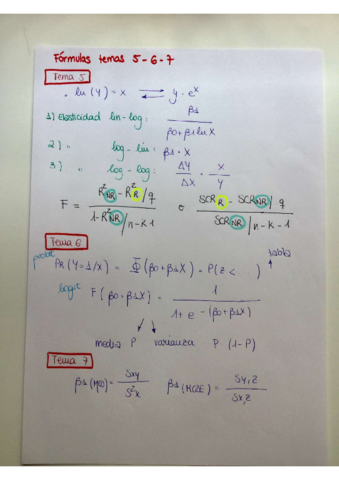 Fórmulas temas 5-6-7
Tema 5
. ln(Y) = X ⇄ y = e^x
1) Elasticidad lin-log: β1 / (β0+β1 ln X)
2) " log-lin: β1 · X
3) " log-log: ΔY/ΔX · X/Y
F = (R²NR - R²R / q) / (1-R²NR / n-k-1) o (SCR R - SCR NR / q) / (SCR NR / n-k-1)
Tema 6
tabla
probit Pr(Y=1/X) = Φ(β0+β1X) = P(z < )
logit F(β0+β1X) = 1 / (1+e^-(β0+β1X))
media P varianza P(1-P)
Tema 7
β1 (MCO) = Sxy / S²x β1 (MC2E) = Sy,z / Sx,z